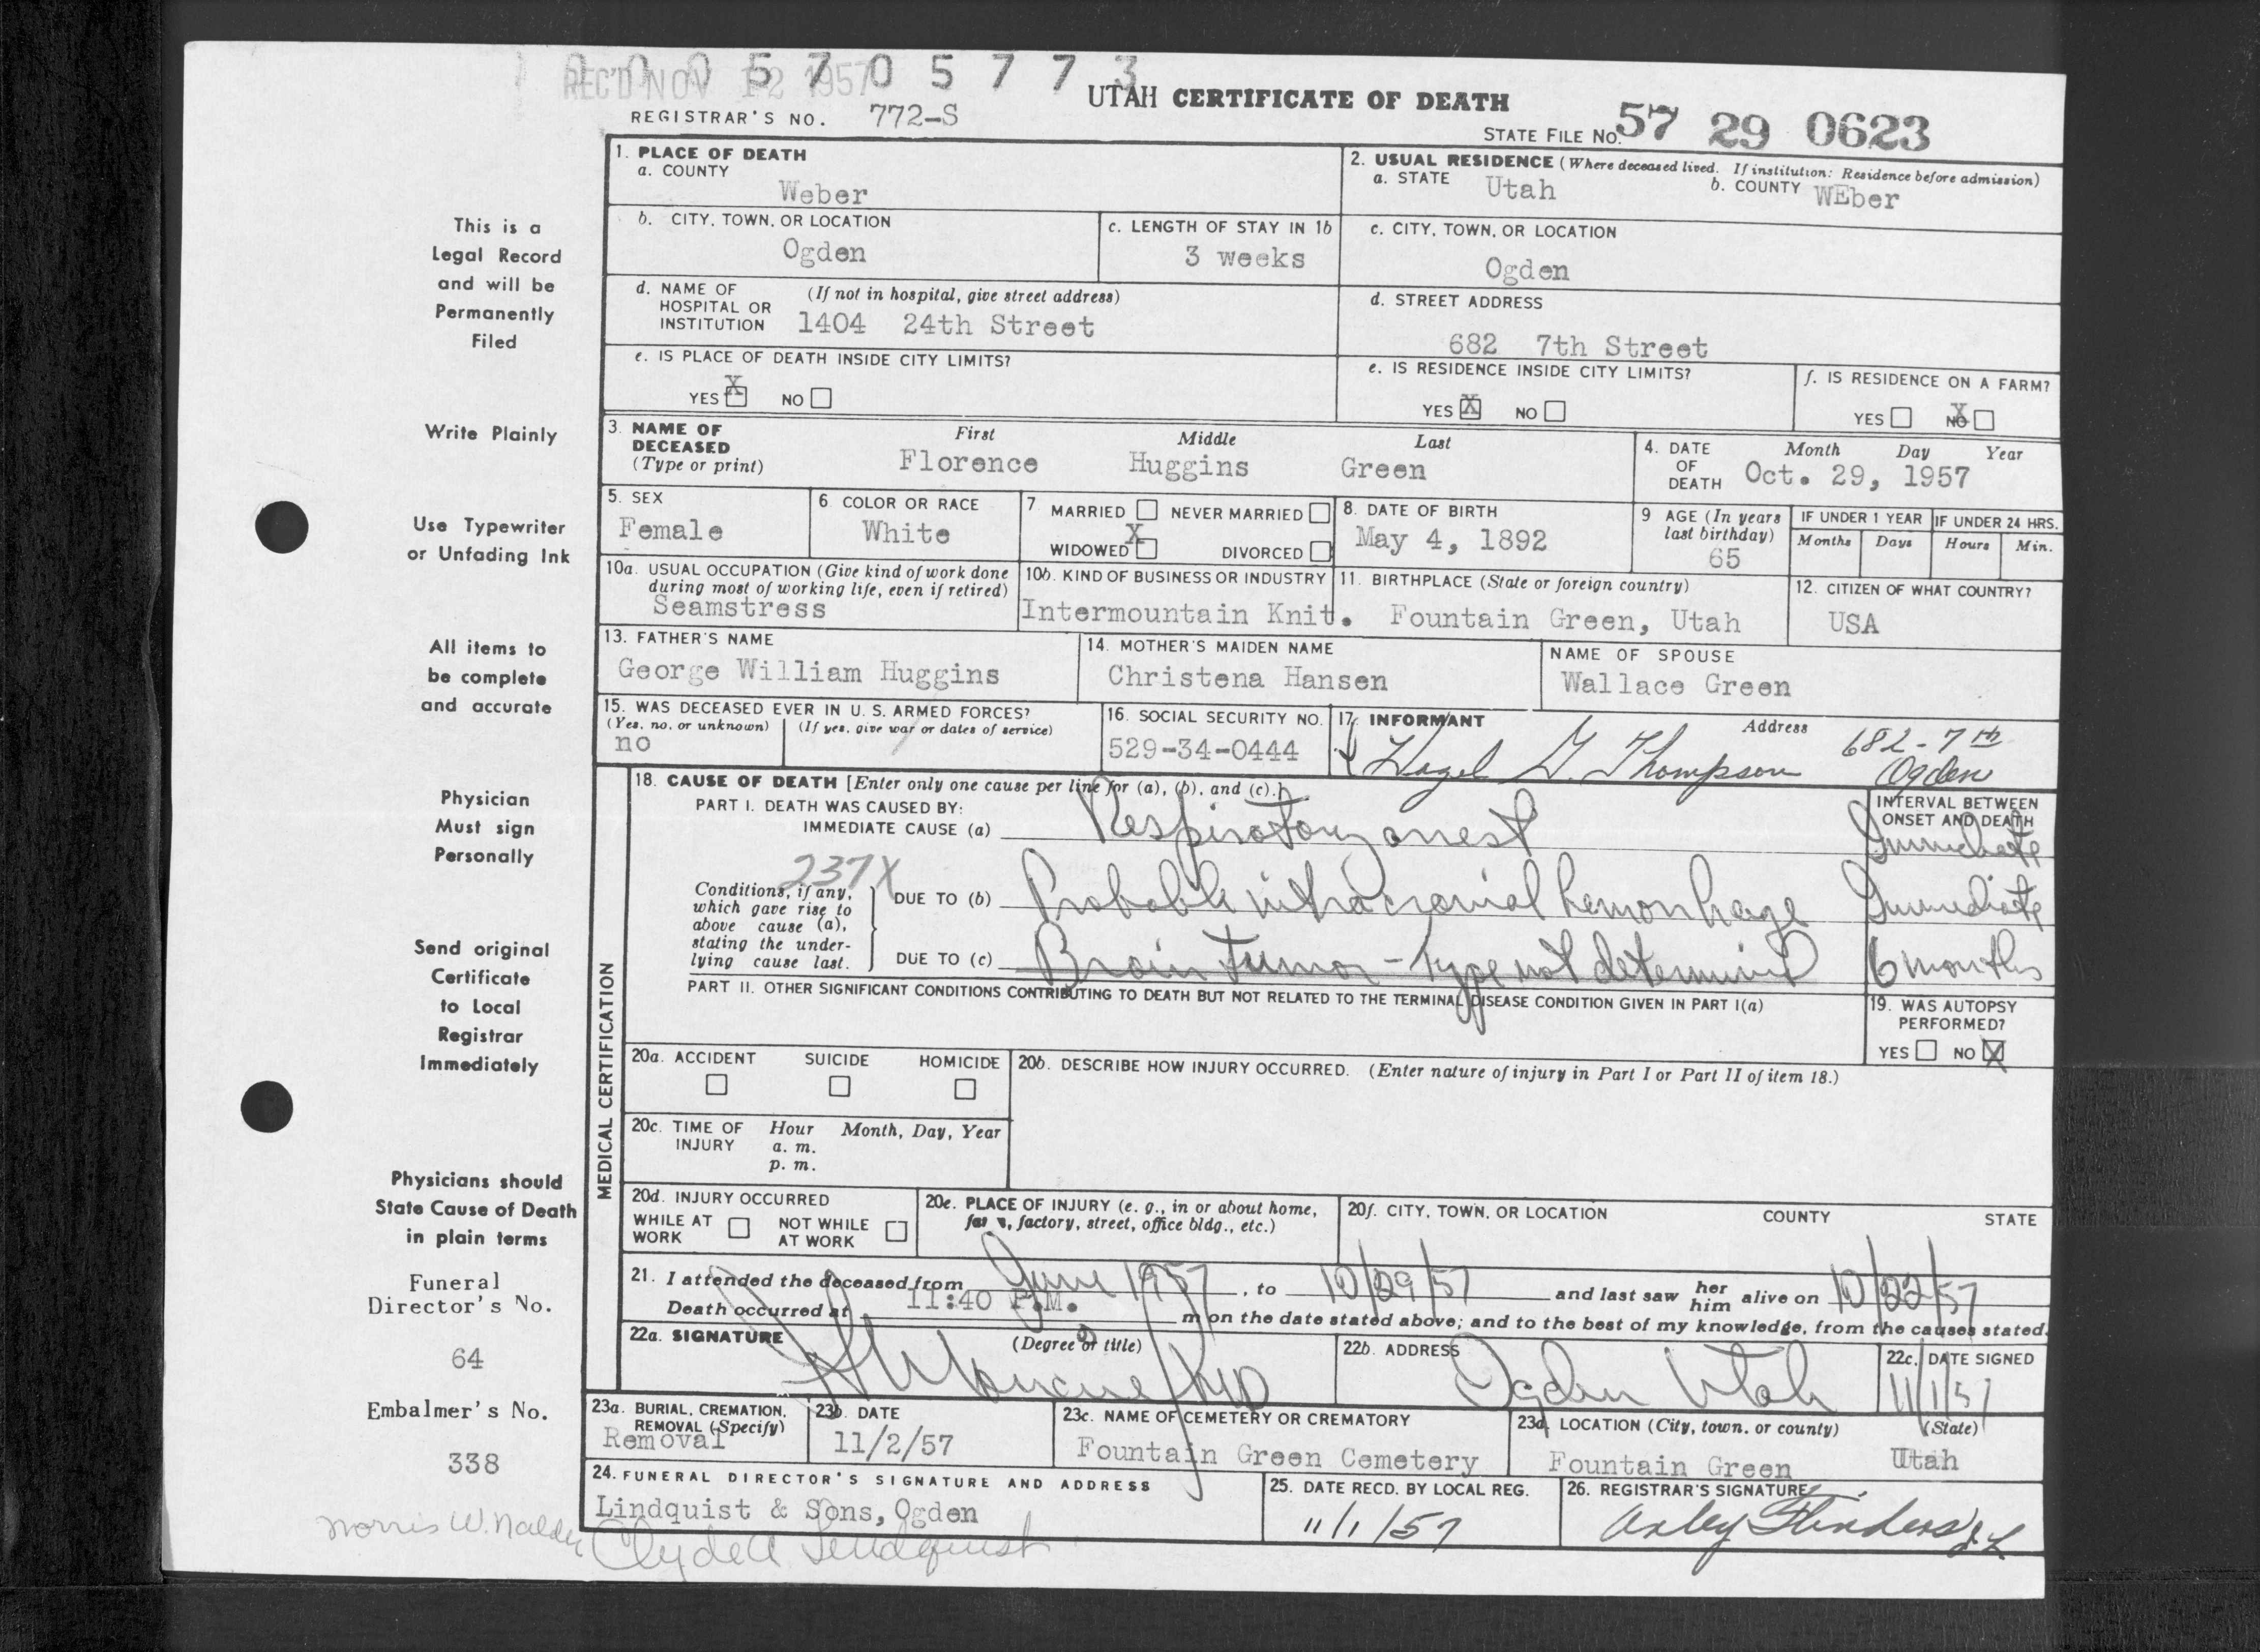 REC'D NOV 12 1957
0 0 5 7 0 5 7 7 3
UTAH CERTIFICATE OF DEATH
REGISTRAR'S NO. 772-S
STATE FILE NO. 57 29 0623
This is a
Legal Record
and will be
Permanently
Filed
Write Plainly
Use Typewriter
or Unfading Ink
All items to
be complete
and accurate
Physician
Must sign
Personally
Send original
Certificate
to Local
Registrar
Immediately
Physicians should
State Cause of Death
in plain terms
Funeral
Director's No.
64
Embalmer's No.
338
1. PLACE OF DEATH
a. COUNTY
Weber
2. USUAL RESIDENCE (Where deceased lived. If institution: Residence before admission)
a. STATE Utah b. COUNTY WEber
b. CITY, TOWN, OR LOCATION
Ogden
c. LENGTH OF STAY IN 1b
3 weeks
c. CITY, TOWN, OR LOCATION
Ogden
d. NAME OF (If not in hospital, give street address)
HOSPITAL OR
INSTITUTION 1404 24th Street
d. STREET ADDRESS
682 7th Street
e. IS PLACE OF DEATH INSIDE CITY LIMITS?
YES X NO
e. IS RESIDENCE INSIDE CITY LIMITS?
YES X NO
f. IS RESIDENCE ON A FARM?
YES NO X
3. NAME OF First Middle Last
DECEASED
(Type or print) Florence Huggins Green
4. DATE Month Day Year
OF
DEATH Oct. 29, 1957
5. SEX
Female
6 COLOR OR RACE
White
7 MARRIED NEVER MARRIED
WIDOWED X DIVORCED
8. DATE OF BIRTH
May 4, 1892
9 AGE (In years
last birthday)
65
IF UNDER 1 YEAR IF UNDER 24 HRS.
Months Days Hours Min.
10a. USUAL OCCUPATION (Give kind of work done
during most of working life, even if retired)
Seamstress
10b. KIND OF BUSINESS OR INDUSTRY
Intermountain Knit.
11. BIRTHPLACE (State or foreign country)
Fountain Green, Utah
12. CITIZEN OF WHAT COUNTRY?
USA
13. FATHER'S NAME
George William Huggins
14. MOTHER'S MAIDEN NAME
Christena Hansen
NAME OF SPOUSE
Wallace Green
15. WAS DECEASED EVER IN U. S. ARMED FORCES?
(Yes, no, or unknown) (If yes, give war or dates of service)
no
16. SOCIAL SECURITY NO.
529-34-0444
17. INFORMANT Address
Hazel G. Thompson 682-7th
Ogden
MEDICAL CERTIFICATION
18. CAUSE OF DEATH [Enter only one cause per line for (a), (b), and (c).]
PART I. DEATH WAS CAUSED BY:
IMMEDIATE CAUSE (a) Respiratory arrest
INTERVAL BETWEEN
ONSET AND DEATH
Immediate
237X
Conditions, if any,
which gave rise to
above cause (a),
stating the under-
lying cause last.
DUE TO (b) Probable intracranial hemorrhage Immediate
DUE TO (c) Brain tumor - type not determined 6 months
PART II. OTHER SIGNIFICANT CONDITIONS CONTRIBUTING TO DEATH BUT NOT RELATED TO THE TERMINAL DISEASE CONDITION GIVEN IN PART I(a)
19. WAS AUTOPSY
PERFORMED?
YES NO X
20a. ACCIDENT SUICIDE HOMICIDE
20b. DESCRIBE HOW INJURY OCCURRED. (Enter nature of injury in Part I or Part II of item 18.)
20c. TIME OF Hour Month, Day, Year
INJURY a. m.
p. m.
20d. INJURY OCCURRED
WHILE AT NOT WHILE
WORK AT WORK
20e. PLACE OF INJURY (e. g., in or about home,
farm, factory, street, office bldg., etc.)
20f. CITY, TOWN, OR LOCATION COUNTY STATE
21. I attended the deceased from June 1957, to 10/29/57 and last saw her him alive on 10/22/57
Death occurred at 11:40 P.M. m on the date stated above; and to the best of my knowledge, from the causes stated.
22a. SIGNATURE (Degree or title)
MD
22b. ADDRESS
Ogden Utah
22c. DATE SIGNED
11/1/57
23a. BURIAL, CREMATION,
REMOVAL (Specify)
Removal
23b. DATE
11/2/57
23c. NAME OF CEMETERY OR CREMATORY
Fountain Green Cemetery
23d. LOCATION (City, town, or county) (State)
Fountain Green Utah
24. FUNERAL DIRECTOR'S SIGNATURE AND ADDRESS
Lindquist & Sons, Ogden
25. DATE RECD. BY LOCAL REG.
11/1/57
26. REGISTRAR'S SIGNATURE
Flinders
Norris W. Nalder
Clyde A Lindquist